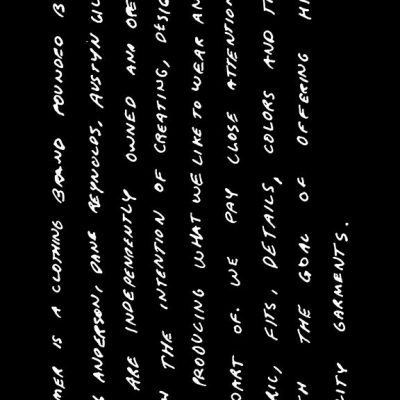 MER IS A CLOTHING BRAND FOUNDED B
ANDERSON, DANE REYNOLDS, AUSTYN
ARE INDEPENDENTLY OWNED AND OPE
THE INTENTION OF CREATING, DESIG
PRODUCING WHAT WE LIKE TO WEAR AN
PART OF. WE PAY CLOSE ATTENTION
RIC, FITS, DETAILS, COLORS AND T
TH THE GOAL OF OFFERING HI
ITY GARMENTS.